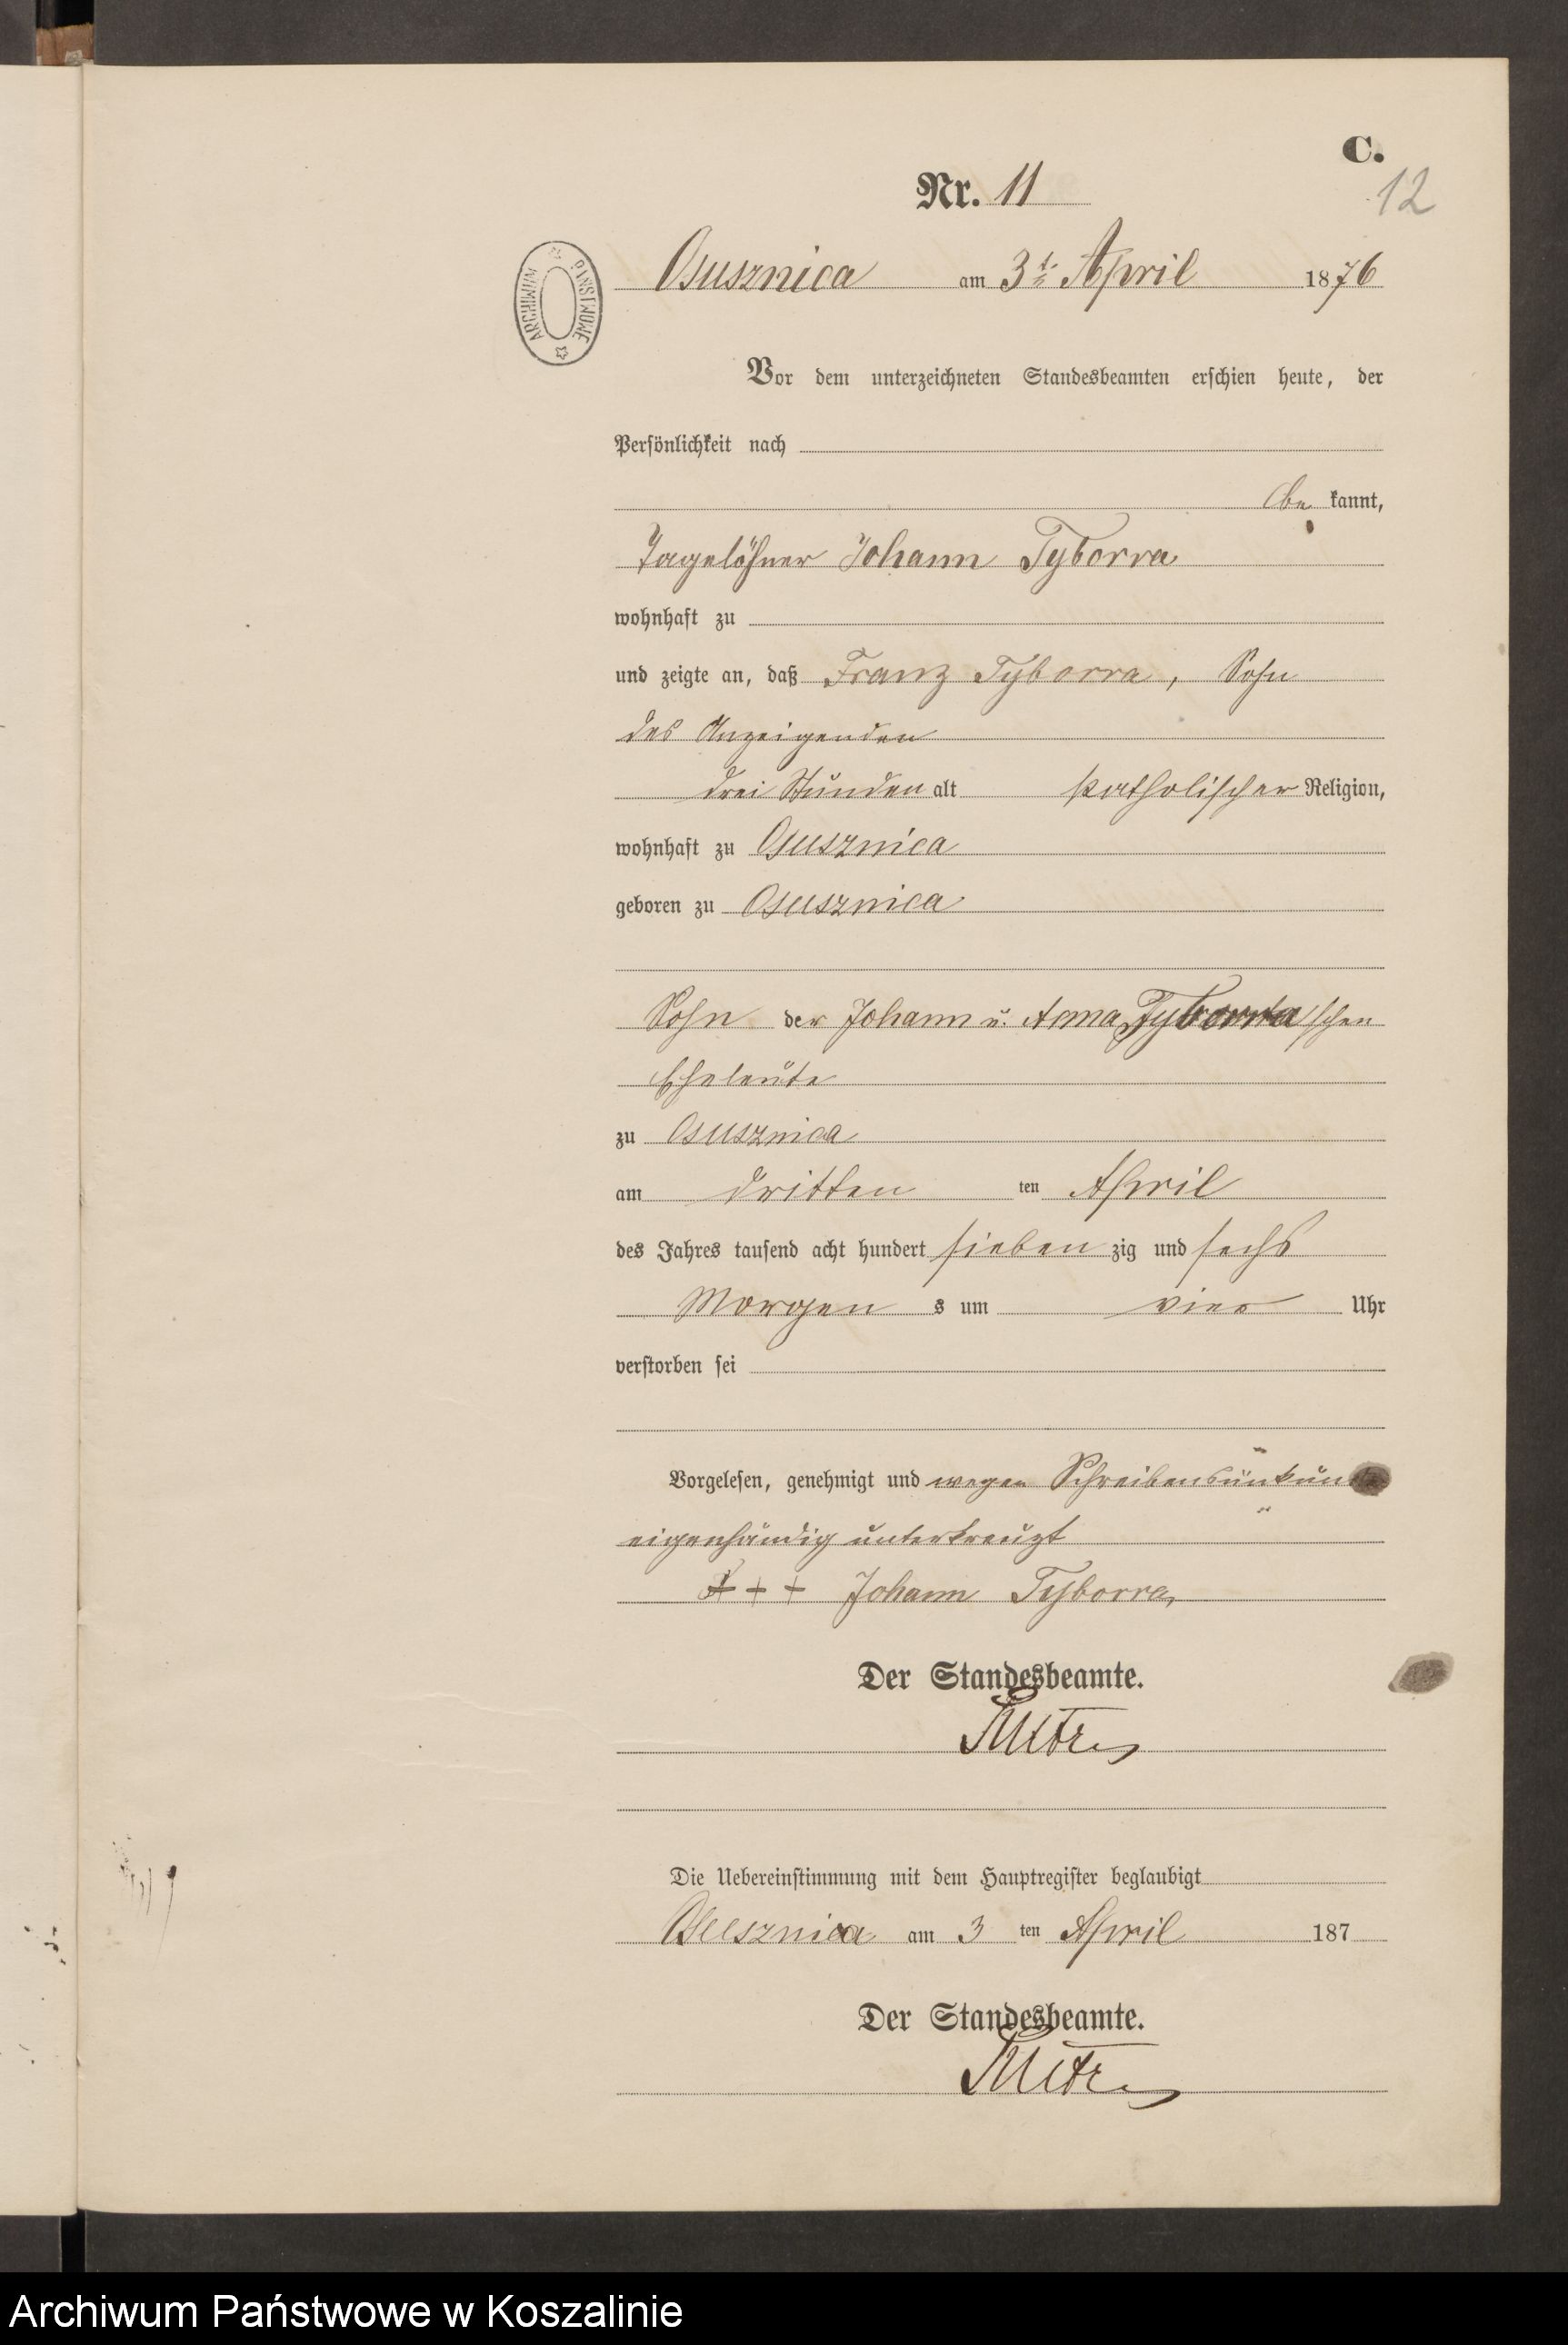 C.
Nr. 11
12
Osusznica am 3t. April 1876
ARCHIWUM PAŃSTWOWE
Vor dem unterzeichneten Standesbeamten erschien heute, der
Persönlichkeit nach
be kannt,
Tagelöhner Johann Tyborra
wohnhaft zu
und zeigte an, daß Franz Tyborra, Sohn
des Anzeigenden
drei Stunden alt katholischer Religion,
wohnhaft zu Osusznica
geboren zu Osusznica
Sohn der Johann u. Anna Tyborra'schen
Eheleute
zu Osusznica
am dritten ten April
des Jahres tausend acht hundert sieben zig und sechs
Morgen s um vier Uhr
verstorben sei
Vorgelesen, genehmigt und wegen
eigenhändig unterkreuzt
+ + + Johann Tyborra
Der Standesbeamte.
Die Uebereinstimmung mit dem Hauptregister beglaubigt
Osusznica am 3 ten April 187
Der Standesbeamte.
Archiwum Państwowe w Koszalinie